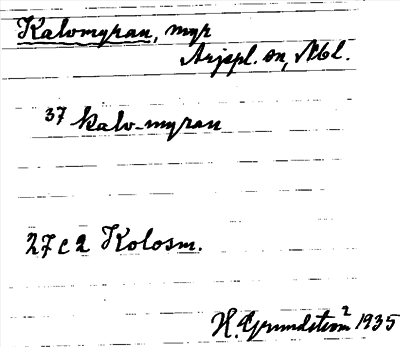 Kalvmyran, myr
Arjspl. sn, Nbl.
37 kalv-myran
27 c 2 Kolosm.
H. Grundström 2 1935